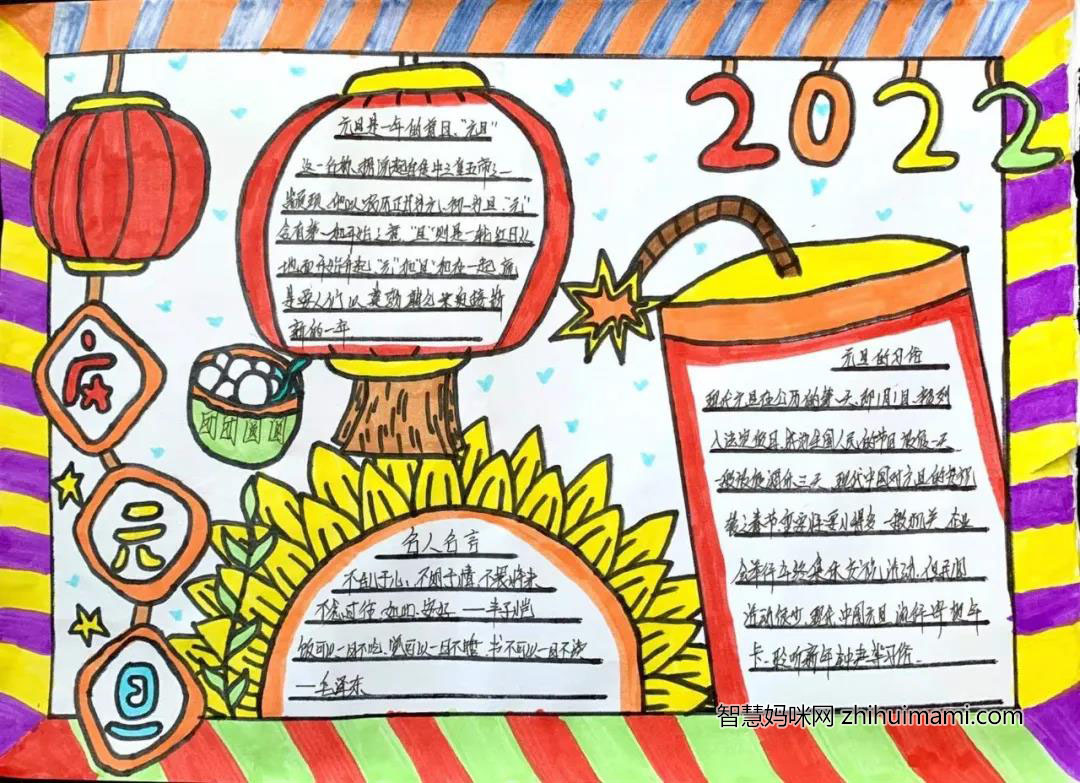 2022
元旦是一年的首日、"元旦"
这一名称，据说起自传中三皇五帝之一
颛顼，他以农历正月为元，初一为旦，"元"
含有第一和开始之意，"旦"则是一轮红日从
地面开始升起，"元"和"旦"和在一起，就
是要人们以
新的一年
庆
元
旦
团团圆圆
名人名言
不乱于心，不困于情，不畏将来
不念过往，如此，安好 ——丰子恺
饭可以一日不吃，觉可以一日不睡，书不可以一日不读
——毛泽东
元旦的习俗
现代元旦在公历的第一天，即1月1日，
入法定假日，成为全国人民的节日 放假一天
一般
较之春节重要性要小得多 一般机关、企业
会举行年终集体
活动很少，现代中国元旦 流行寄贺年
卡、聆听新年钟声等习俗。
智慧妈咪网 zhihuimami.com